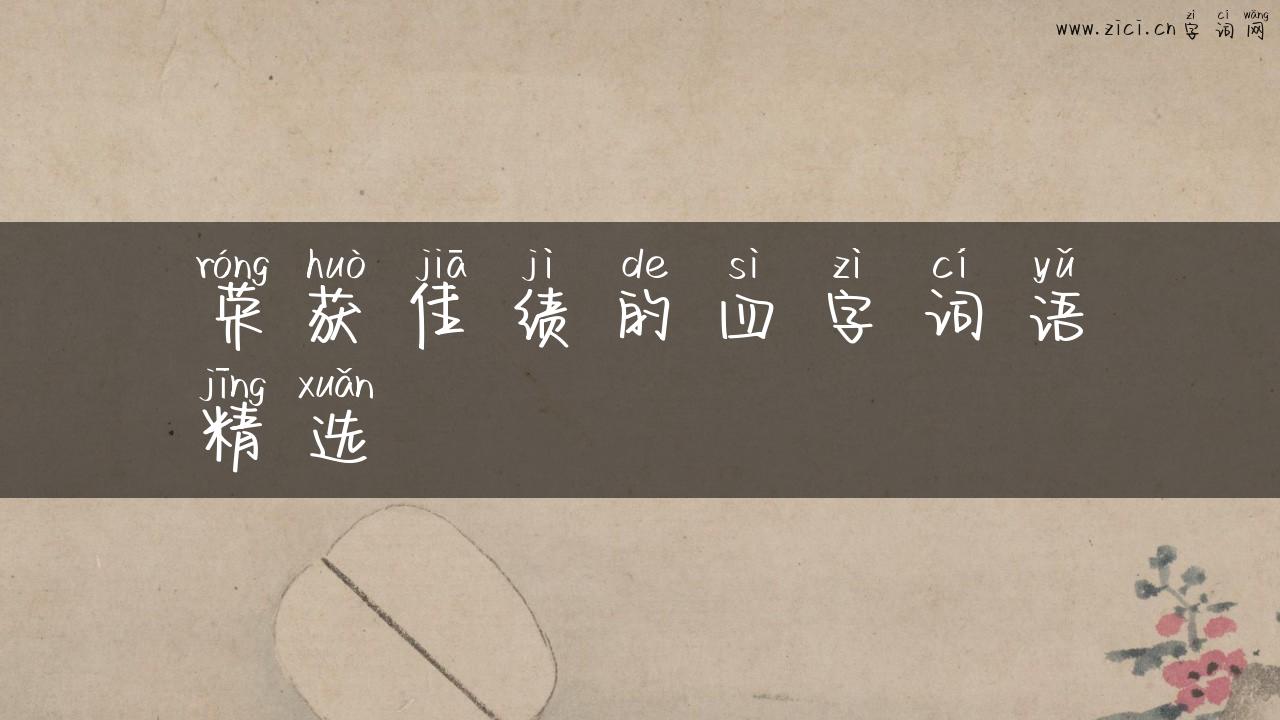 zì cí wǎng
www.zici.cn字词网
róng huò jiā jì de sì zì cí yǔ
荣获佳绩的四字词语
jīng xuǎn
精选